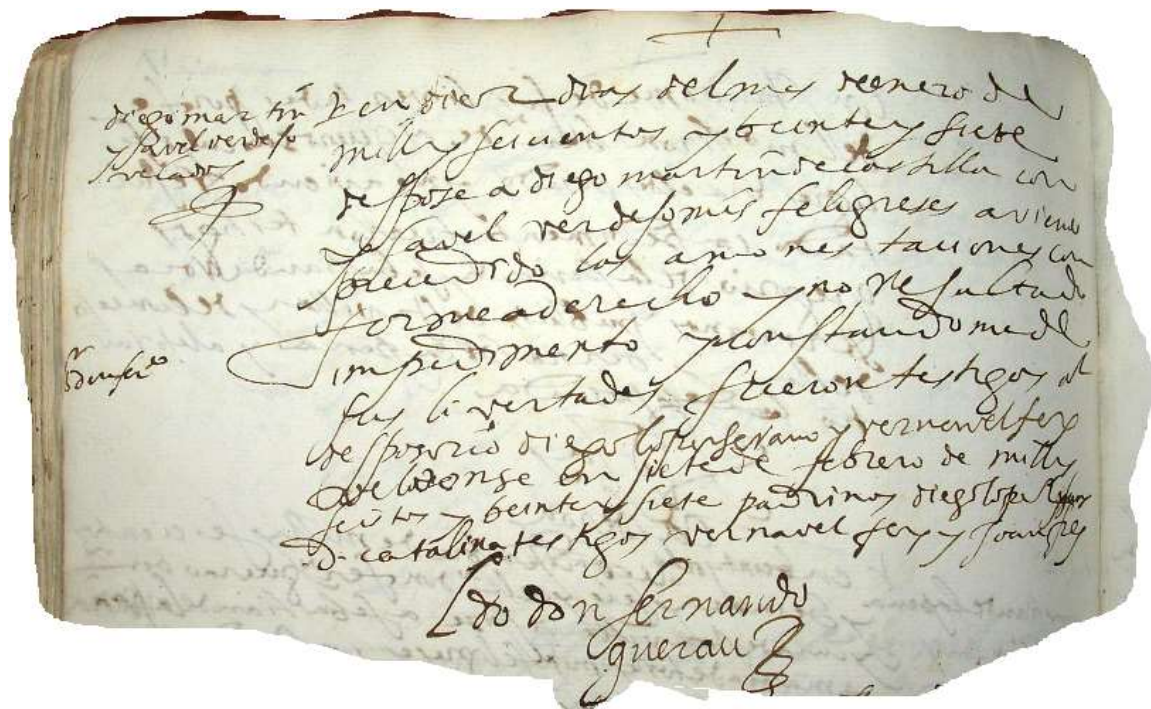 diego martin
y ysavel verdeso
velados
en diez dias del mes de enero de
mill y seiscientos y beinte y siete
despose a diego martin de castilla con
ysavel verdeso mis feligreses aviendo
precedido las amonestaciones con
forme a derecho y no resultado
impedimento y constandome de
sus livertades fueron testigos al
desposorio diego lopez serano y vernavel fez
velaronse en siete de febrero de mill y
seiscientos y beinte y siete padrinos diego lopez
D. catalina testigos vernavel fez y
Ldo don fernando
guerau